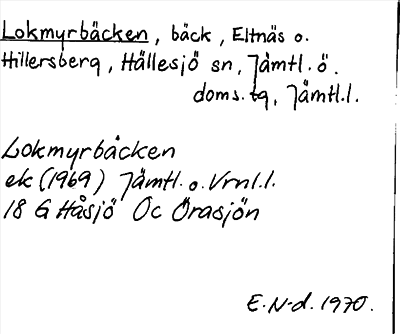 Lokmyrbäcken, bäck, Eltnäs o.
Hillersberg, Hällesjö sn, Jämtl. ö.
doms. tg, Jämtl. l.
Lokmyrbäcken
ek (1969) Jämtl. o. Vrnl. l.
18 G Håsjö Oc Örasjön
E. N-d. 1970.